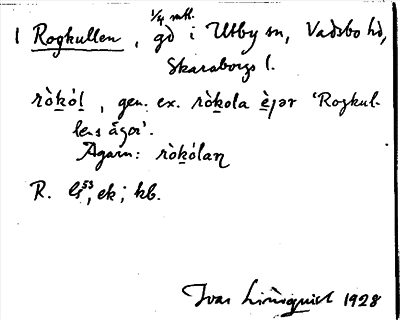 1 Rogkullen, 1/4 mtl. gd i Utby sn, Vadsbo hd,
Skaraborgs l.
ròkól, gen. ex. ròkola èjər 'Rogkul-
lens ägor'.
Ägarn: ròkólaɳ
R. ls 53, ek; kb.
Ivar Lindquist 1928